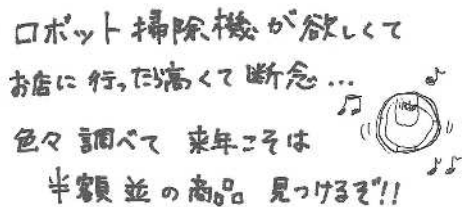 ロボット掃除機が欲しくて
お店に行ったら高くて断念...
色々調べて 来年こそは
半額並の商品 見つけるぞ!!